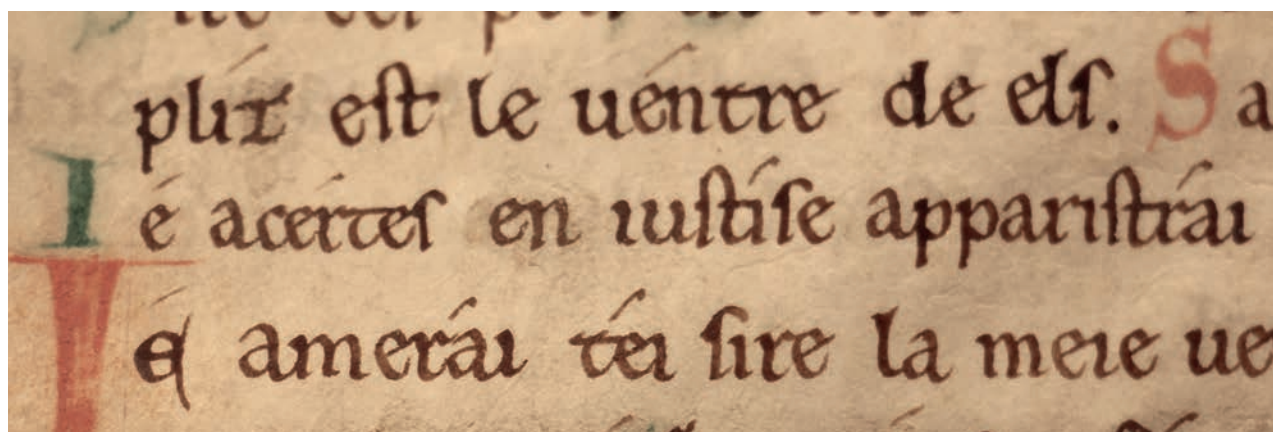 plix est le uéntre de els. Sa
Ié acértes en iustíse apparistrái
Ié amerái téi sire la meie ue